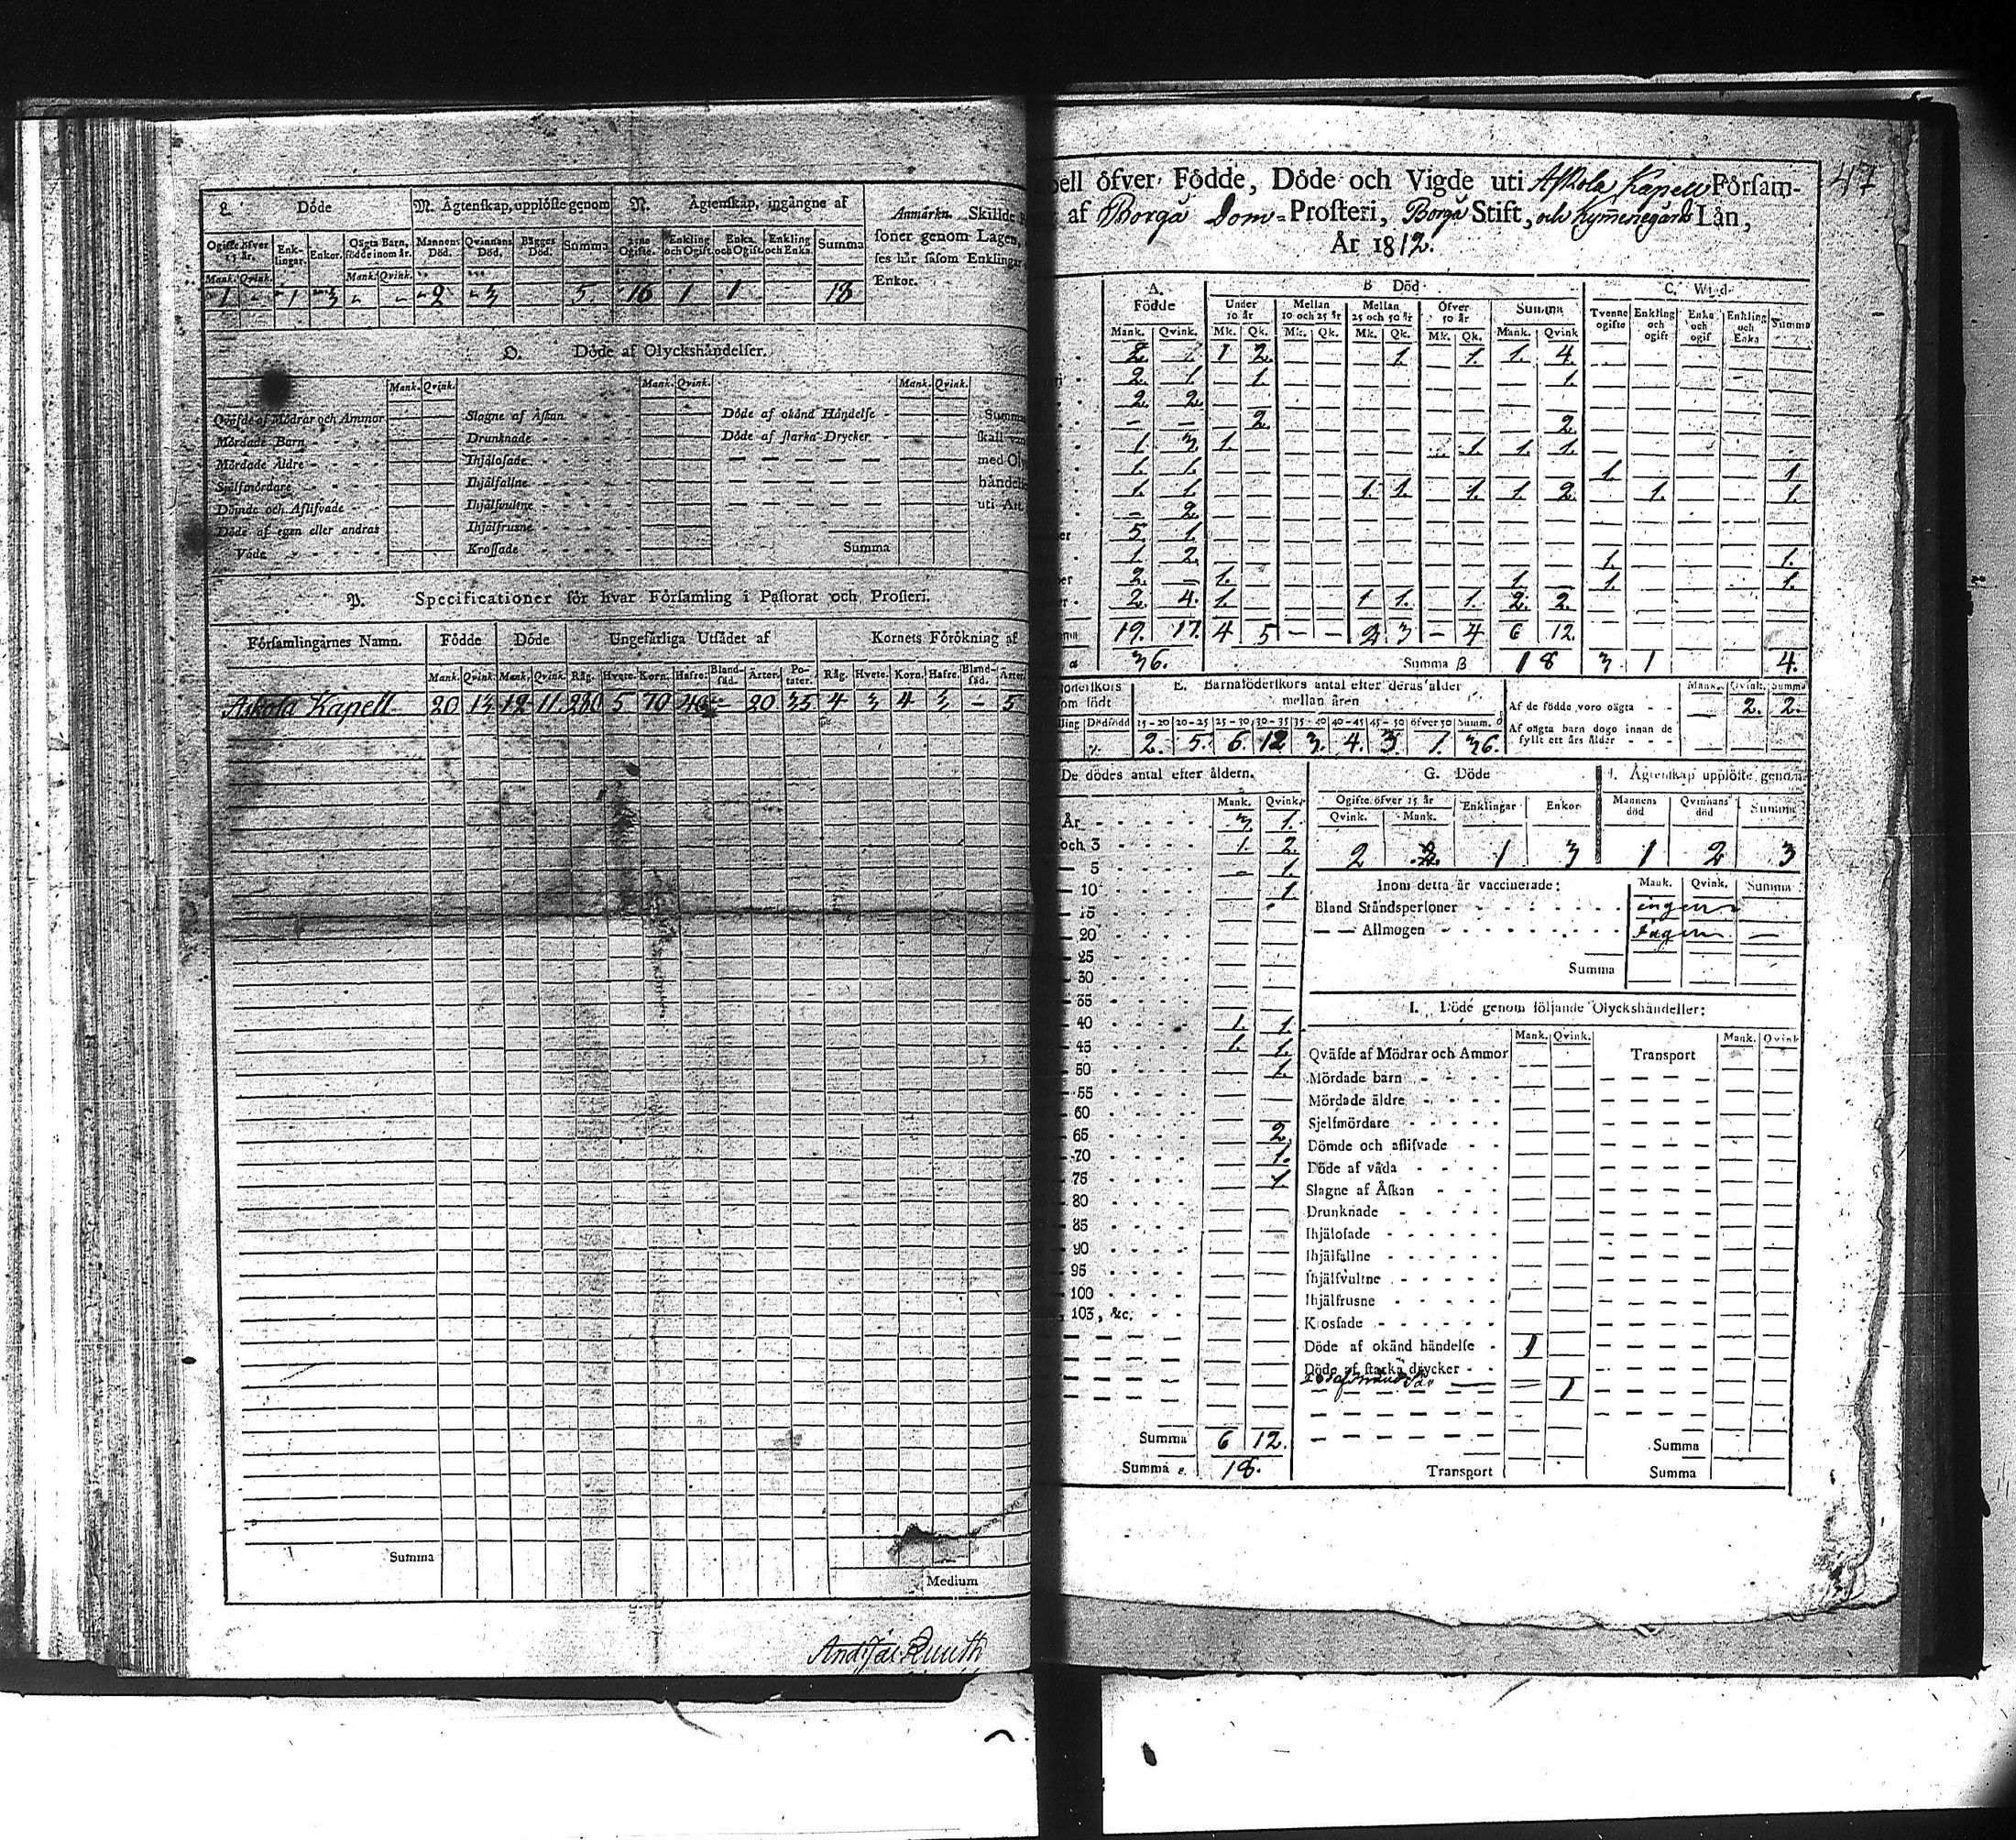 L. Döde
M. Ägtenskap, upplöste genom
N. Ägtenskap, ingångne af
Anmärkn. Skillde
soner genom Lagen,
ses här såsom Enklingar
Enkor.
Ogifte öfver 15 år. Enklingar. Enkor. Oägta Barn, födde inom år. Mannens Död. Qvinnans Död. Bägges Död. Summa Tvne Ogifte. Enkling och Ogift. Enka och Ogift. Enkling och Enka. Summa
Mank. Qvink. Mank. Qvink.
1 - 1 3 - - 2 3 5 16 1 1 18
O. Döde af Olyckshändelser.
Mank. Qvink. Mank. Qvink. Mank. Qvink.
Qväfde af Mödrar och Ammor Slagne af Åskan Döde af okänd Händelse Summa
Mördade Barn Drunknade Döde af starka Drycker skall
Mördade Äldre Ihjälosade med
Sjelfmördare Ihjälfallne händels
Dömde och Aflifvade Ihjälsvultne uti Art.
Döde af egen eller andras Ihjälfrusne
Våde Krossade Summa
P. Specificationer för hvar Församling i Pastorat och Prosteri.
Församlingarnes Namn. Födde Döde Ungefärliga Utsådet af Kornets Förökning af
Mank. Qvink. Mank. Qvink. Råg. Hvete. Korn. Hafre. Blandsäd. Ärter. Potäter. Råg. Hvete. Korn. Hafre. Blandsäd. Ärter
Askola Kapell 20 13 12 11 280 5 70 40 - 20 35 4 3 4 3 - 5
Summa
Medium
47
pell öfver Födde, Döde och Vigde uti Askola Kapell Församaf
af Borgå Dom-Prosteri, Borgå Stift, och Kymenegårds Län,
År 1812.
A. Födde B Död C. Wigd
Under 10 år Mellan 10 och 25 år Mellan 25 och 50 år Öfver 50 år Summa Tvenne ogifte Enkling och ogift Enka och ogif Enkling och Enka Summa
Mank. Qvink. Mk. Qk. Mk. Qk. Mk. Qk. Mk. Qk. Mank. Qvink
2 1 1 2 — — 1 1 1 4
2. 1 — 1 1.
2. 2.
— — 2 2
1 3 1. 1 1. 1.
1. 1. 1. 1
1. 1 1. 1. 1. 1. 2 1. 1.
— 2
er 5 1
1 2. 1. 1.
er 2 — 1. 1. — 1. 1
2. 4. 1. 1 1. 1. 2. 2.
19. 17. 4 5 — — 2 3 — 4 6 12.
36. Summa B 18 3 1 4.
E. Barnaföderskors antal efter deras ålder
mellan åren
15-20 20-25 25-30 30-35 35-40 40-45 45-50 öfver 50 Summ.
2. 5. 6. 12 3. 4. 3 1 36.
Mank. Qvink. Summa
Af de födde voro oägta - - — 2. 2.
Af oägta barn dogo innan de
fyllt ett års ålder - - -
De dödes antal efter åldern.
Mank. Qvink.
År 3. 1.
och 3 1. 2.
5 - 1.
10 1.
15
20
25
30
35
40 1. 1.
45 1. 1.
50 1.
55
60
65 2
70 1.
75 1
80
85
90
95
100
103, &c.
Summa 6 12.
Summa 18.
G. Döde
Ogifte öfver 15 år Enklingar Enkor
Qvink. Mank.
2 1 3
Ägtenskap upplöste genom
Mannens död Qvinnans död Summa
1 2 3
Inom detta år vaccinerade: Mank. Qvink. Summa
Bland Ståndspersoner ingen
— — Allmogen Ingen —
Summa
I. Döde genom följande Olyckshändelser:
Mank. Qvink. Mank. Qvink
Qväfde af Mödrar och Ammor Transport
Mördade barn
Mördade äldre
Sjelfmördare
Dömde och aflifvade
Döde af våda
Slagne af Åskan
Drunknade
Ihjälosade
Ihjälfallne
Ihjälsvultne
Ihjälfrusne
Krossade
Döde af okänd händelse 1
Döde af starka drycker
1
Summa
Transport Summa